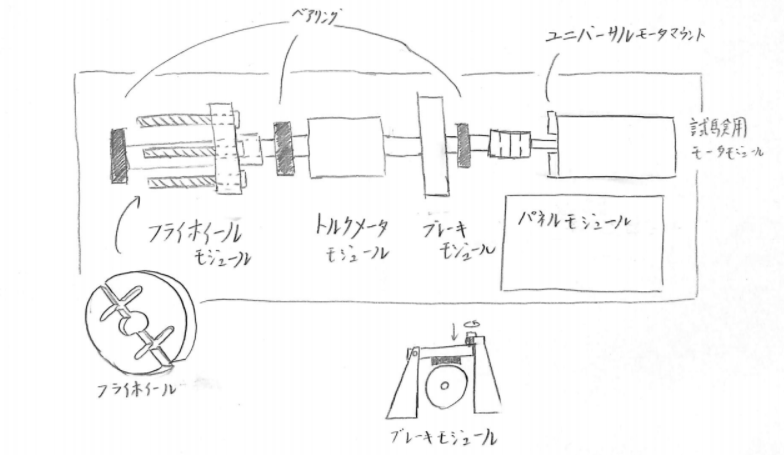 ベアリング
ユニバーサルモータマウント
試験用
モータモジュール
フライホイール
モジュール
トルクメータ
モジュール
ブレーキ
モジュール
パネルモジュール
フライホイール
ブレーキモジュール